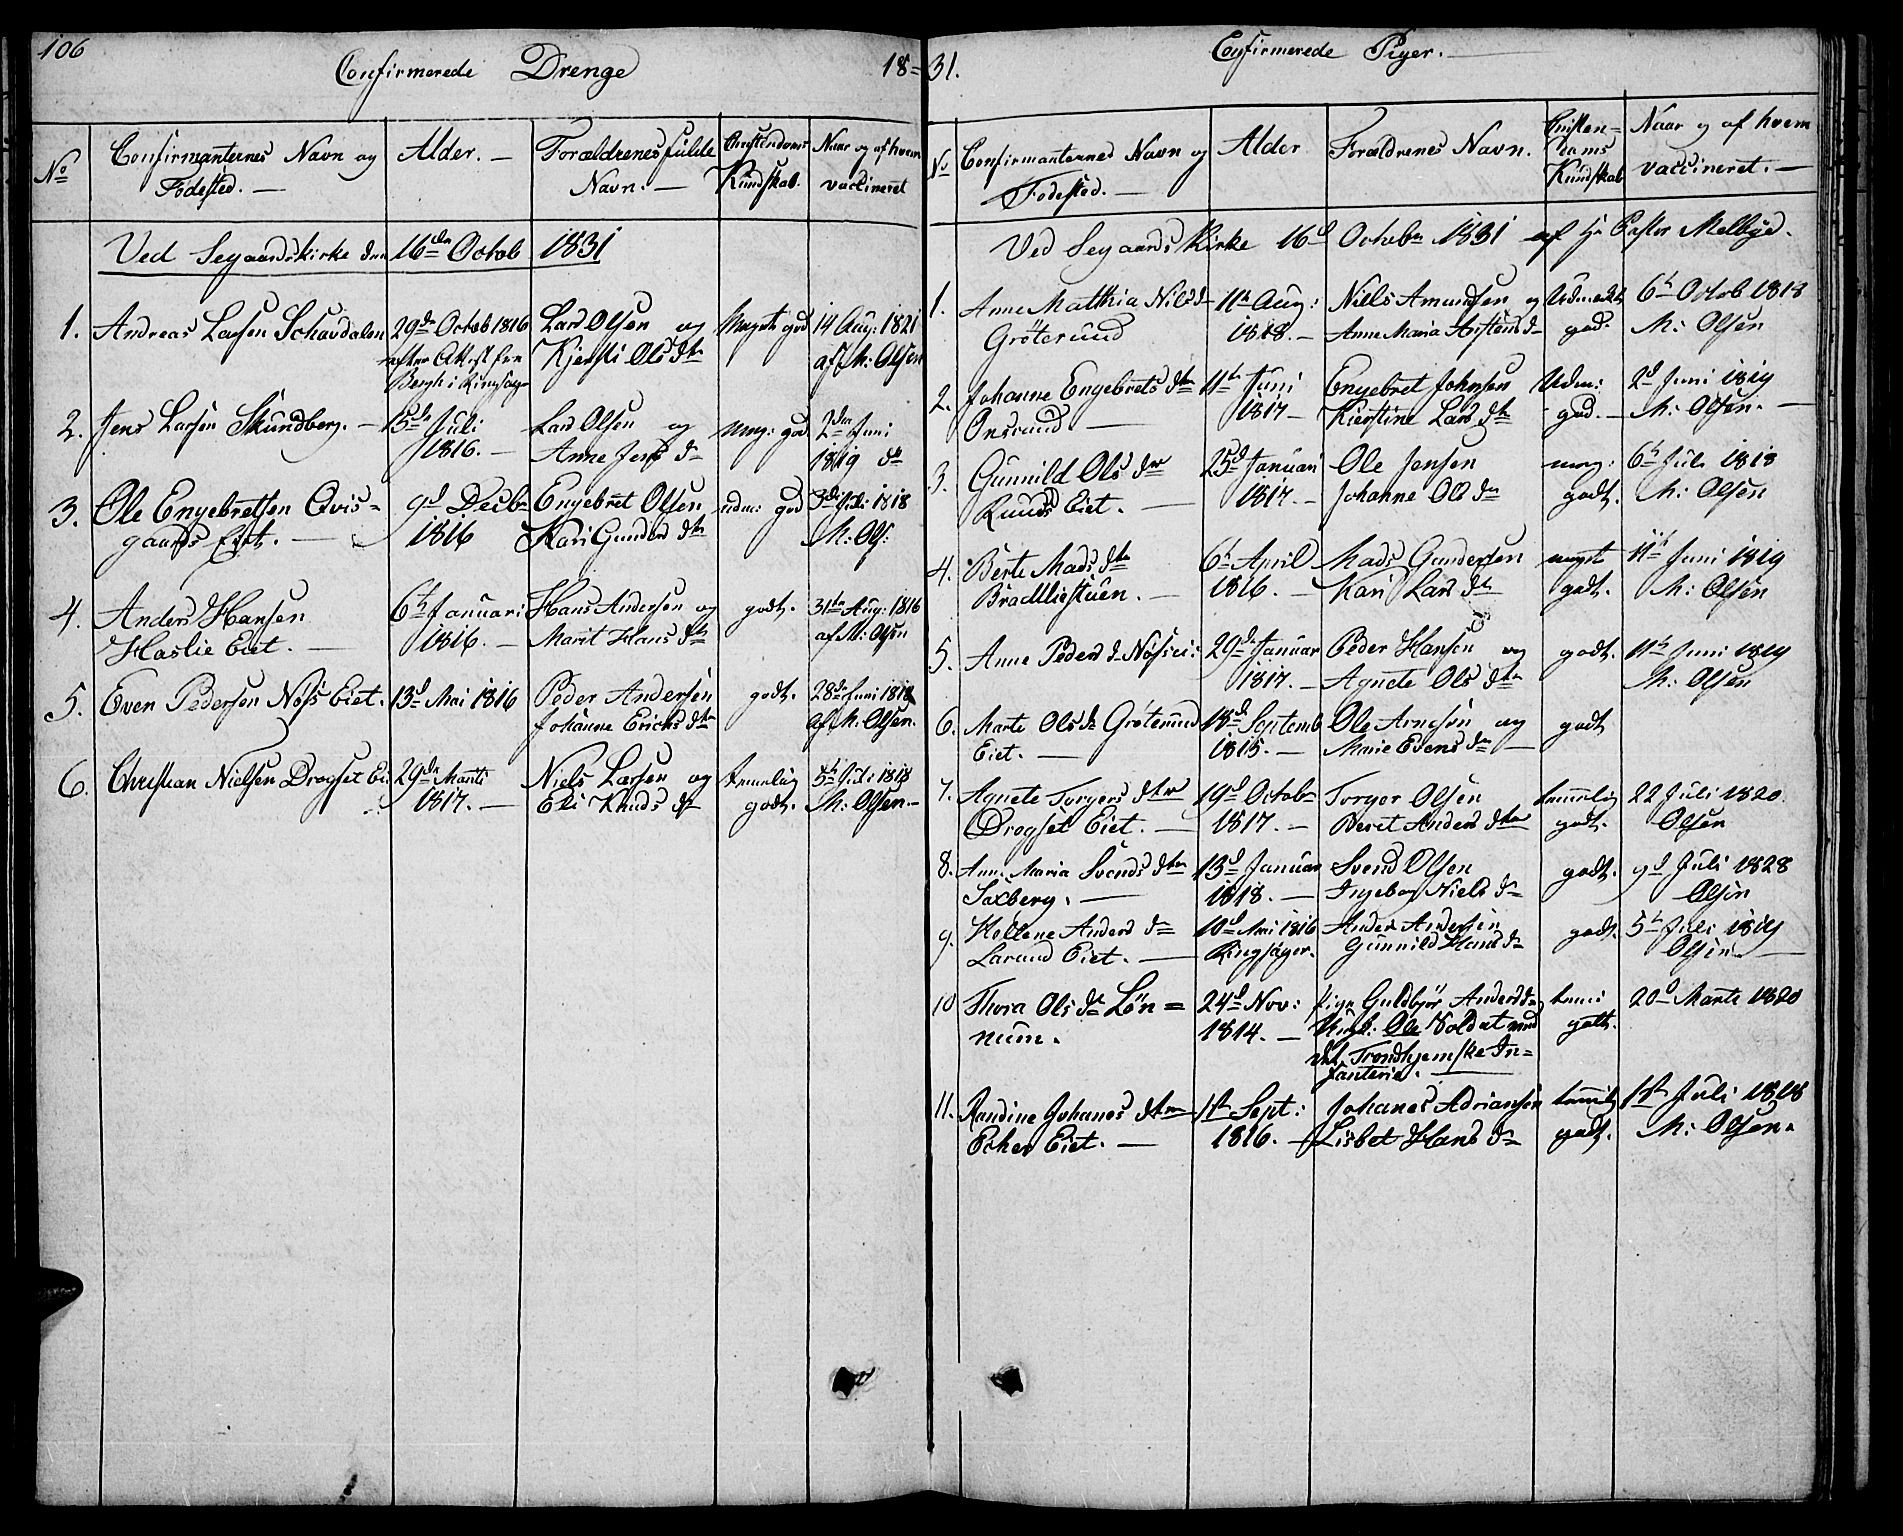 106
Confirmerede Drenge 18=
No
Confirmanternes Navn og
Fødested. —
Alder. —
Forældrenes fulde
Navn. —
Christendoms
Kundskab.
Naar og af hvem
vaccineret
Ved Segaards Kirke den 16de Octob 1831
1. Andreas Larsen Schavdalen
29de Octob 1816
efter Attest fra
Lars Olsen og
Kjersti Ols dtr
Meget god
14 Aug: 1821
af M: Olsen
2. Jens Larsen Skundberg. —
15de Juli
1816. —
Lars Olsen og
Anne Jens dr
meg: god
2den Juni
1819 do
3. Ole Engebretsen Qvis=
gaards Eiet. —
9d Decbr
1816
Engebret Olsen
Kari Gunders dtr
udm: god
3die Juli 1818
M: Ols:
4. Anders Hansen
Haslie Eiet. —
6te Januari
1816. —
Hans Andersen og
Marit Hans dtr
godt.
31te Aug: 1816
af M: Olsen
5. Even Pedersen Nøss Eiet.
13d Mai 1816
Peder Andersen
Johanne Erichs dtr
godt.
28de Juni 1818
af M: Olsen.
6. Christian Nielsen Drogset Ei
29de Marti
1817. —
Niels Larsen og
Eli Knuds dr
temelig
godt.
5te Juli 1818
M: Olsen. —
31. Confirmerede Piger. —
No
Confirmanternes Navn og
Fødested. —
Alder
Forældrenes Navn.
Christen=
doms
Kundskab
Naar og af hvem
vaccineret. —
Ved Segaards Kirke 16d Octobr 1831 af Hr Pastor Melbye.
1. Anne Matthia Nils dr
Grøterund
11te Aug:
1818. —
Niels Amundsen og
Anne Maria dr
Udmerket
god.
6te Octob 1818
M: Olsen
2. Johanne Engebrets dtr
Onsrund —
11te Juni
1817 —
Engebret Johnsen
Kierstine Lars dtr
Udm:
god. —
2d Juni 1819
M: Olsen. —
3. Gunnild Ols dtr
Ruuds Eiet. —
25d Januari
1817. —
Ole Jensen
Johanne Ols dr
meg:
godt.
6te Juli 1818
M: Olsen
4. Berte Mads dtr
Bradtliestuen. —
6te April
1816. —
Mads Gundersen
Kari Lars dtr
meget
godt.
11te Juni 1819
M: Olsen
5. Anne Peders dr Nøssei:
29de Januar
1817. —
Peder Hansen og
Agnete Ols dtr
godt.
11te Juni 1819
M: Olsen
6. Marte Ols dr Grøterund
Eiet. —
18de Septemb
1815. —
Ole Arnesen og
Marie Evens dr —
godt
7. Agnete Torgers dtr
Drogset Eiet. —
19d Octobr
1817. —
Torger Olsen
Beret Anders dtr
temelig
godt.
22 Juli 1820.
Olsen
8. Ann: Maria Svends dtr
Saxberg. —
13d Januar
1818. —
Svend Olsen
Ingebor Niels dr
godt.
9d Juli 1828
Olsen
9. Kollene Anders dr
Larund Eiet. —
10d Mai 1816
Ringsager.
Anders Andersen
Gunnild Hans dr
godt.
5te Juli 1819
Olsen. —
10 Thora Ols dr Løn=
num.
24d Nov:
1814. —
Pige Guldbjør Anders dr
Ole Soldat ved
det Trondhjemske In=
fanterie. —
temi
godt.
20d Marti 1820
11. Randine Johanes dtr
Ecker Eiet. —
1ste Sept:
1816. —
Johanes Adriansen
Lisbet Hans dr
temelig
godt.
1ste Juli 1818
M: Olsen.